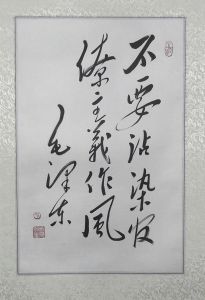 不要沾染官
僚主義作風
毛澤東